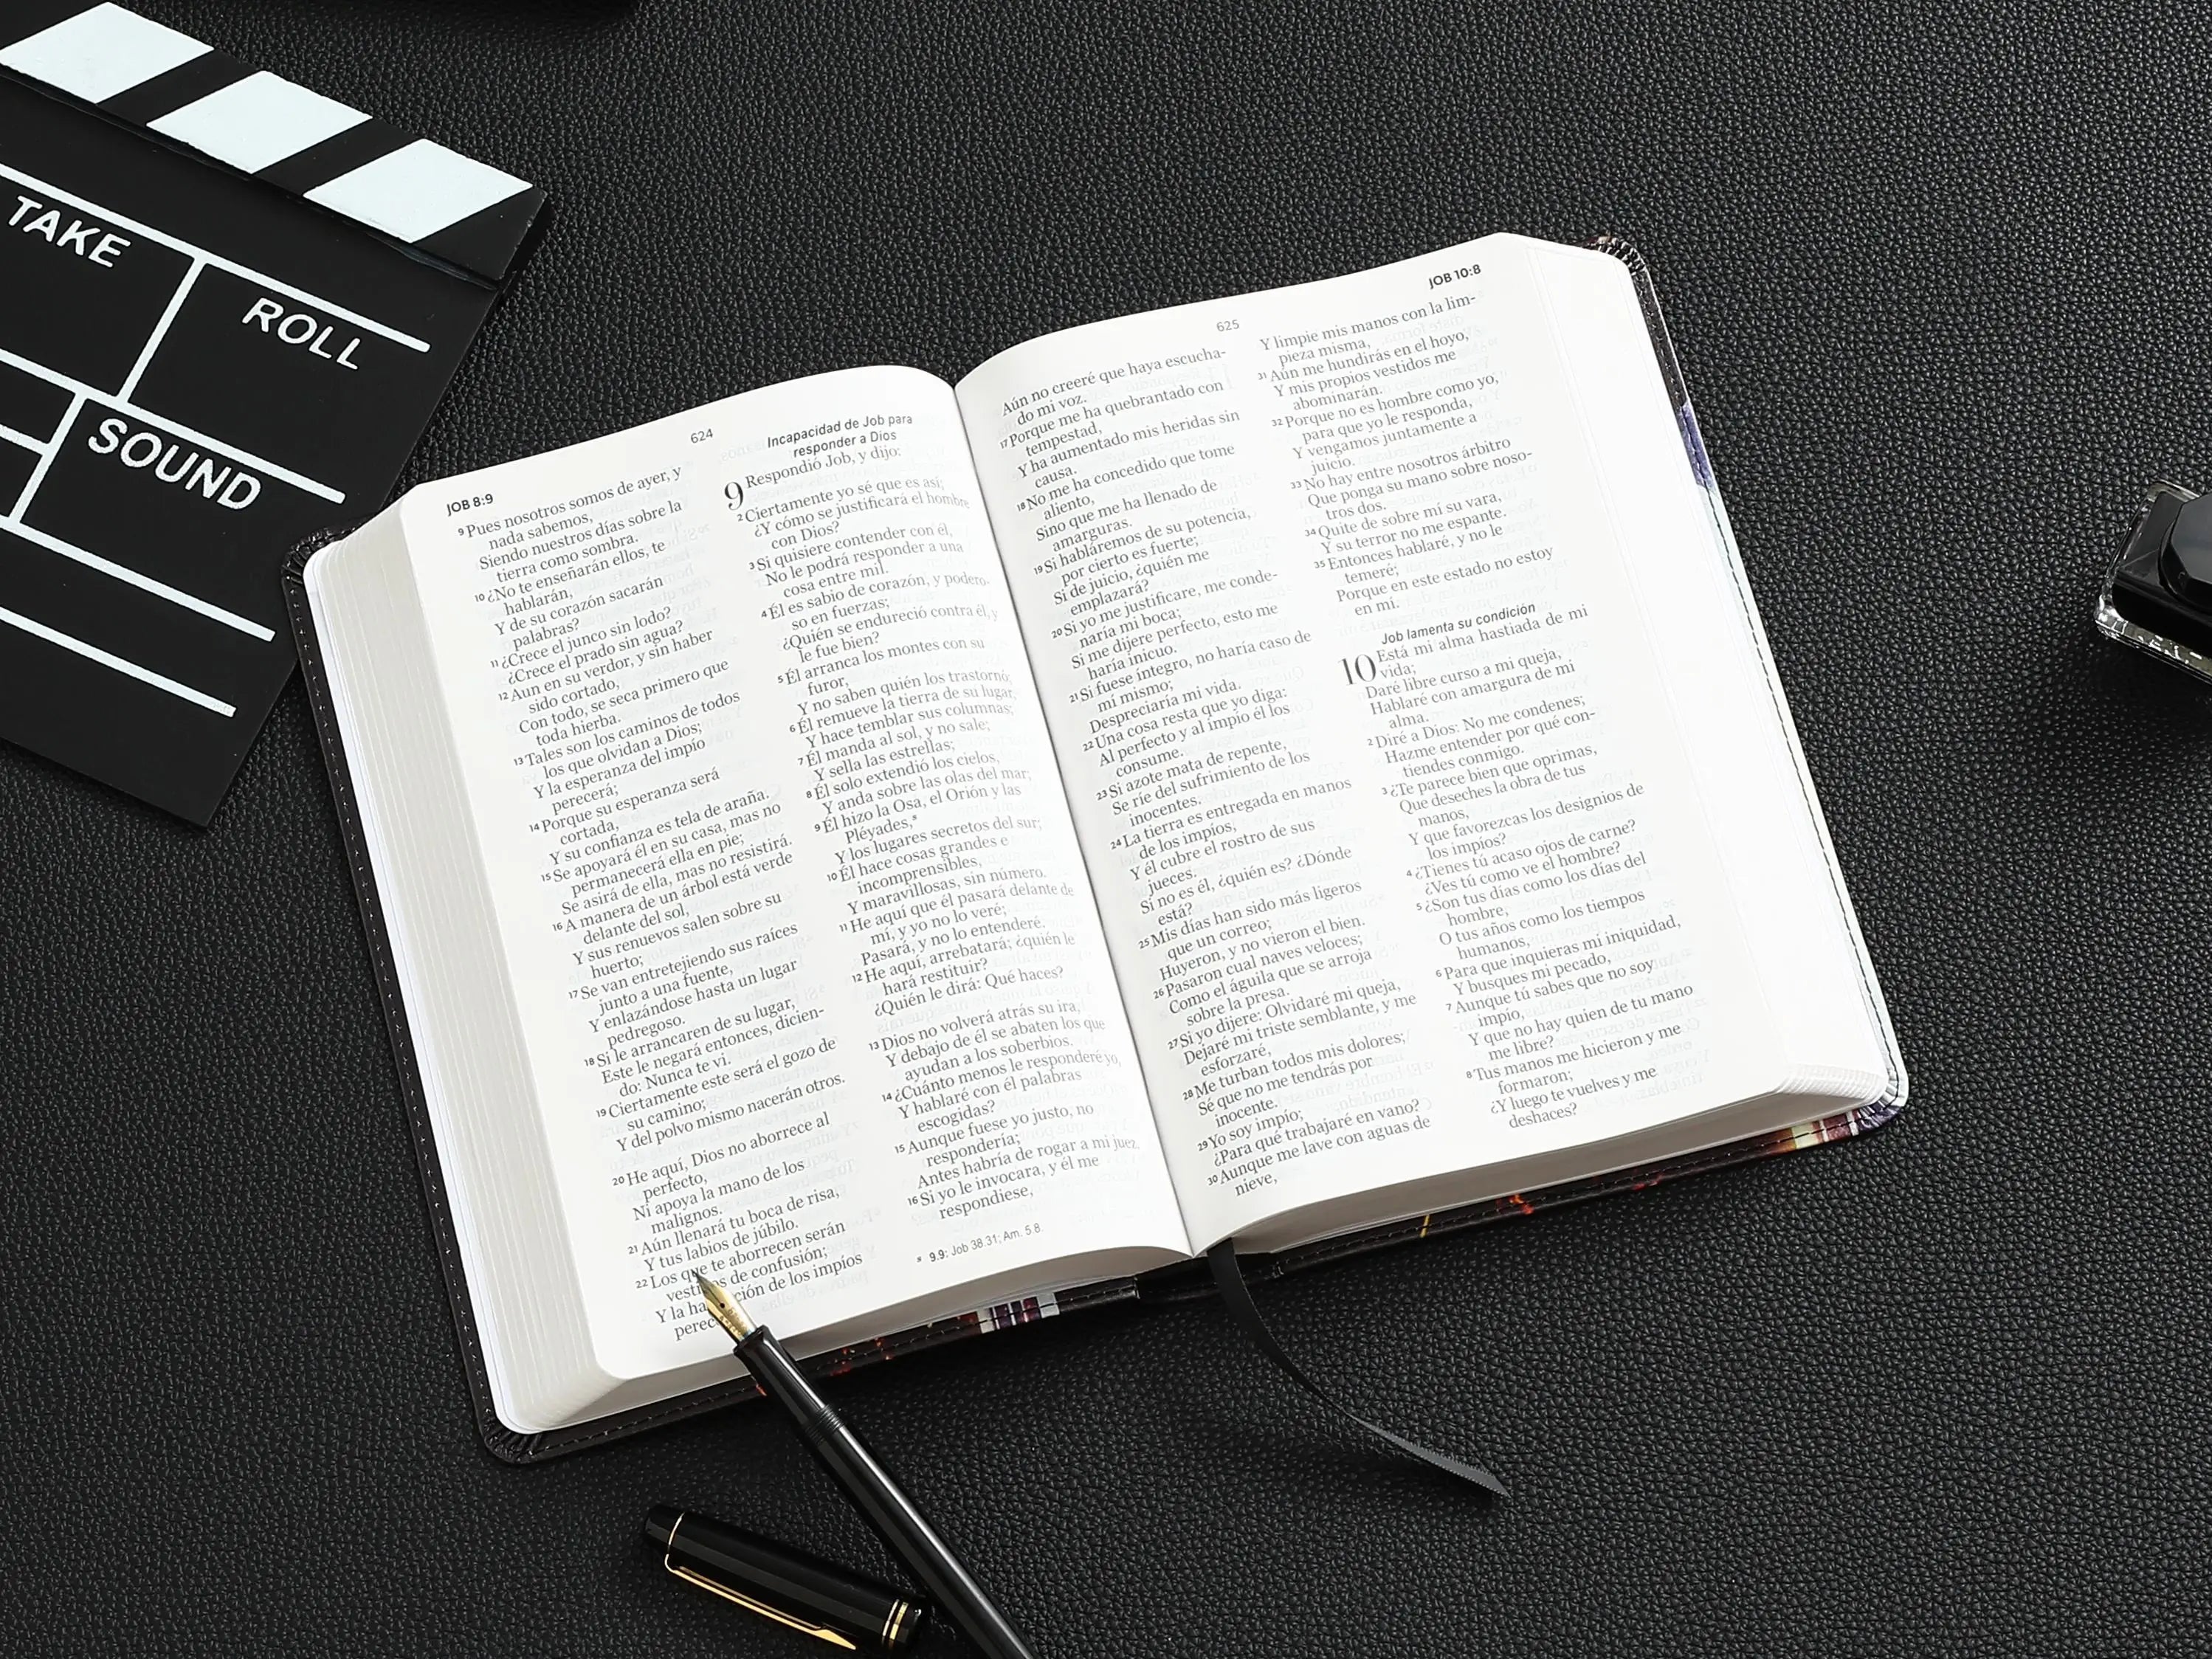 TAKE
ROLL
SOUND
JOB 8:9
624
9 Pues nosotros somos de ayer, y
nada sabemos,
Siendo nuestros días sobre la
tierra como sombra.
10 ¿No te enseñarán ellos, te
hablarán,
Y de su corazón sacarán
palabras?
11 ¿Crece el junco sin lodo?
¿Crece el prado sin agua?
12 Aun en su verdor, y sin haber
sido cortado,
Con todo, se seca primero que
toda hierba.
13 Tales son los caminos de todos
los que olvidan a Dios;
Y la esperanza del impío
perecerá;
14 Porque su esperanza será
cortada,
Y su confianza es tela de araña.
15 Se apoyará él en su casa, mas no
permanecerá ella en pie;
Se asirá de ella, mas no resistirá.
16 A manera de un árbol está verde
delante del sol,
Y sus renuevos salen sobre su
huerto;
17 Se van entretejiendo sus raíces
junto a una fuente,
Y enlazándose hasta un lugar
pedregoso.
18 Si le arrancaren de su lugar,
Este le negará entonces, dicien-
do: Nunca te vi.
19 Ciertamente este será el gozo de
su camino;
Y del polvo mismo nacerán otros.
20 He aquí, Dios no aborrece al
perfecto,
Ni apoya la mano de los
malignos.
21 Aún llenará tu boca de risa,
Y tus labios de júbilo.
22 Los que te aborrecen serán
vesti s de confusión;
Y la ha ción de los impíos
perec
Incapacidad de Job para
responder a Dios
9 Respondió Job, y dijo:
2 Ciertamente yo sé que es así;
¿Y cómo se justificará el hombre
con Dios?
3 Si quisiere contender con él,
No le podrá responder a una
cosa entre mil.
4 Él es sabio de corazón, y podero-
so en fuerzas;
¿Quién se endureció contra él, y
le fue bien?
5 Él arranca los montes con su
furor,
Y no saben quién los trastornó;
6 Él remueve la tierra de su lugar,
Y hace temblar sus columnas;
7 Él manda al sol, y no sale;
Y sella las estrellas;
8 Él solo extendió los cielos,
Y anda sobre las olas del mar;
9 Él hizo la Osa, el Orión y las
Pléyades,
Y los lugares secretos del sur;
10 Él hace cosas grandes e
incomprensibles,
Y maravillosas, sin número.
11 He aquí que él pasará delante de
mí, y yo no lo veré;
Pasará, y no lo entenderé.
12 He aquí, arrebatará; ¿quién le
hará restituir?
¿Quién le dirá: Qué haces?
13 Dios no volverá atrás su ira,
Y debajo de él se abaten los que
ayudan a los soberbios.
14 ¿Cuánto menos le responderé yo,
Y hablaré con él palabras
escogidas?
15 Aunque fuese yo justo, no
respondería;
Antes habría de rogar a mi juez.
16 Si yo le invocara, y él me
respondiese,
9.9: Job 38.31; Am. 5.8.
625
JOB 10:8
Aún no creeré que haya escucha-
do mi voz.
17 Porque me ha quebrantado con
tempestad,
Y ha aumentado mis heridas sin
causa.
18 No me ha concedido que tome
aliento,
Sino que me ha llenado de
amarguras.
19 Si habláremos de su potencia,
por cierto es fuerte;
Si de juicio, ¿quién me
emplazará?
20 Si yo me justificare, me conde-
naría mi boca;
Si me dijere perfecto, esto me
haría inicuo.
21 Si fuese íntegro, no haría caso de
mí mismo;
Despreciaría mi vida.
22 Una cosa resta que yo diga:
Al perfecto y al impío él los
consume.
23 Si azote mata de repente,
Se ríe del sufrimiento de los
inocentes.
24 La tierra es entregada en manos
de los impíos,
Y él cubre el rostro de sus
jueces.
Si no es él, ¿quién es? ¿Dónde
está?
25 Mis días han sido más ligeros
que un correo;
Huyeron, y no vieron el bien.
26 Pasaron cual naves veloces;
Como el águila que se arroja
sobre la presa.
27 Si yo dijere: Olvidaré mi queja,
Dejaré mi triste semblante, y me
esforzaré,
28 Me turban todos mis dolores;
Sé que no me tendrás por
inocente.
29 Yo soy impío;
¿Para qué trabajaré en vano?
30 Aunque me lave con aguas de
nieve,
Y limpie mis manos con la lim-
pieza misma,
31 Aún me hundirás en el hoyo,
Y mis propios vestidos me
abominarán.
32 Porque no es hombre como yo,
para que yo le responda,
Y vengamos juntamente a
juicio.
33 No hay entre nosotros árbitro
Que ponga su mano sobre noso-
tros dos.
34 Quite de sobre mí su vara,
Y su terror no me espante.
35 Entonces hablaré, y no le
temeré;
Porque en este estado no estoy
en mí.
Job lamenta su condición
10 Está mi alma hastiada de mi
vida;
Daré libre curso a mi queja,
Hablaré con amargura de mi
alma.
2 Diré a Dios: No me condenes;
Hazme entender por qué con-
tiendes conmigo.
3 ¿Te parece bien que oprimas,
Que deseches la obra de tus
manos,
Y que favorezcas los designios de
los impíos?
4 ¿Tienes tú acaso ojos de carne?
¿Ves tú como ve el hombre?
5 ¿Son tus días como los días del
hombre,
O tus años como los tiempos
humanos,
6 Para que inquieras mi iniquidad,
Y busques mi pecado,
7 Aunque tú sabes que no soy
impío,
Y que no hay quien de tu mano
me libre?
8 Tus manos me hicieron y me
formaron;
¿Y luego te vuelves y me
deshaces?